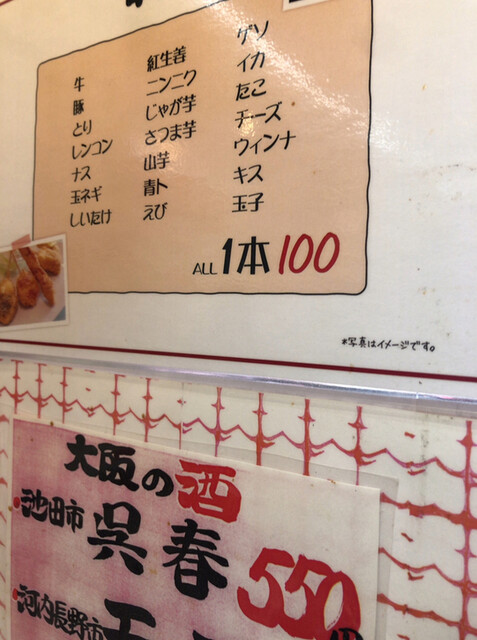 牛
豚
とり
レンコン
ナス
玉ネギ
しいたけ
紅生姜
ニンニク
じゃが芋
さつま芋
山芋
青ト
えび
ゲソ
イカ
たこ
チーズ
ウィンナ
キス
玉子
ALL 1本100
*写真はイメージです。
大阪の酒
池田市 呉春 550円
河内長野市